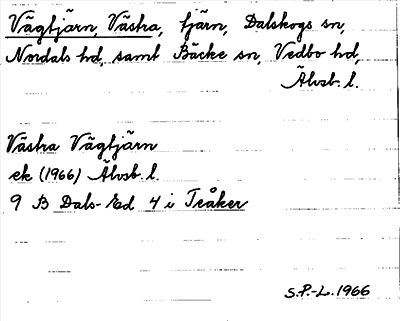 Vägtjärn, Västra, tjärn, Dalskogs sn,
Nordals hd, samt Bäcke sn, Vedbo hd,
Älvsb. l.
Västra Vägtjärn
ek (1966) Älvsb. l.
9 B Dals-Ed 4 i Teåker
S.P.-L. 1966